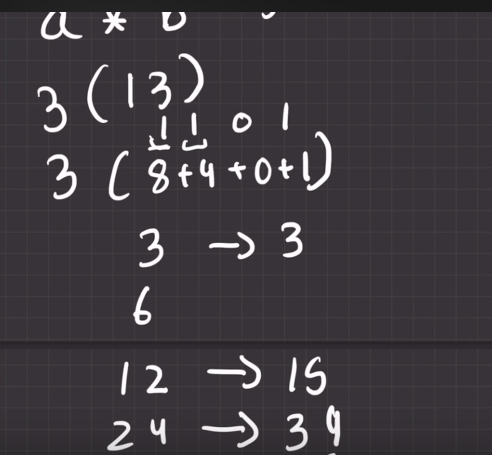 a * b
3 (13)
1 1 0 1
3 (8+4+0+1)
3 → 3
6
12 → 15
24 → 39